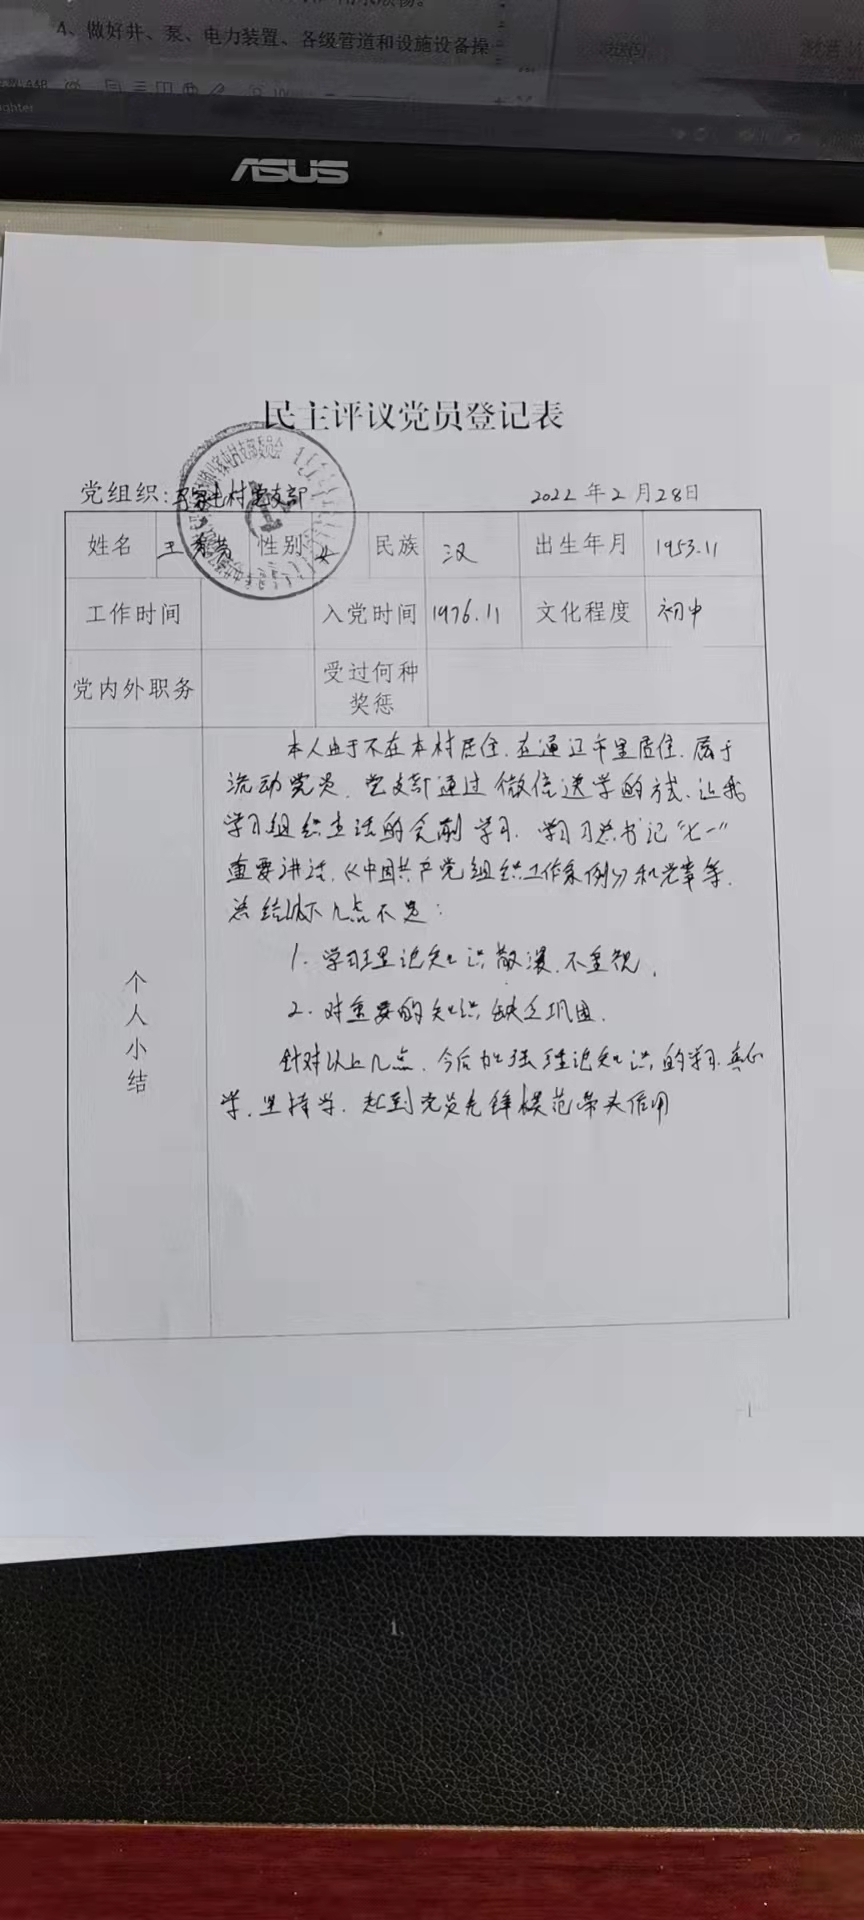 4、做好井、泵、电力装置、各级管道和设施设备操
ASUS
民主评议党员登记表
党组织:马家屯村党支部 2022年2月28日
姓名 王秀芳 性别 女 民族 汉 出生年月 1953.11
工作时间 入党时间 1976.11 文化程度 初中
党内外职务 受过何种奖惩
个人小结
本人由于不在本村居住,在通辽市里居住,属于
流动党员,党支部通过微信送学的方式,让我
学习组织生活的会前学习,学习习总书记“七一”
重要讲话,《中国共产党组织工作条例》和党章等,
总结以下几点不足:
1.学习理论知识散漫,不重视,
2.对重要的知识缺乏巩固.
针对以上几点,今后加强理论知识的学习,真心
学,坚持学,起到党员先锋模范带头作用
1